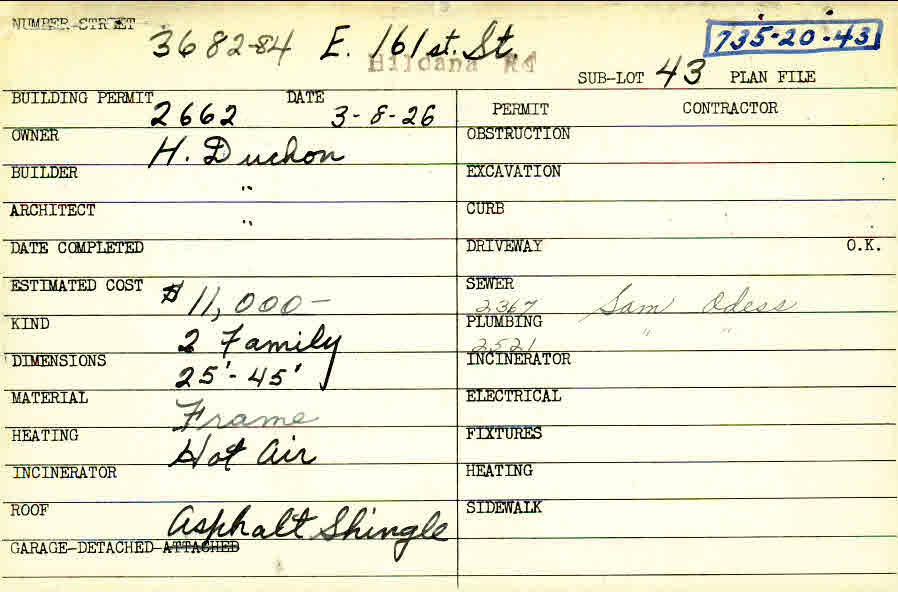 NUMBER-STREET 3682-84 E. 161st. St. 735-20-43
Hildana Rd
SUB-LOT 43 PLAN FILE
BUILDING PERMIT 2662 DATE 3-8-26
PERMIT CONTRACTOR
OWNER H. Duchon
OBSTRUCTION
BUILDER "
EXCAVATION
ARCHITECT "
CURB
DATE COMPLETED
DRIVEWAY O.K.
ESTIMATED COST $11,000-
SEWER 2367 Sam Odess
KIND 2 Family
PLUMBING 2521 " "
DIMENSIONS 25'-45'
INCINERATOR
MATERIAL Frame
ELECTRICAL
HEATING Hot Air
FIXTURES
INCINERATOR
HEATING
ROOF Asphalt Shingle
SIDEWALK
GARAGE-DETACHED-ATTACHED